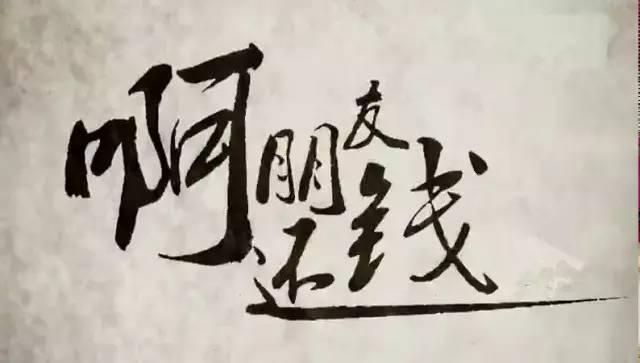 啊朋友
还钱